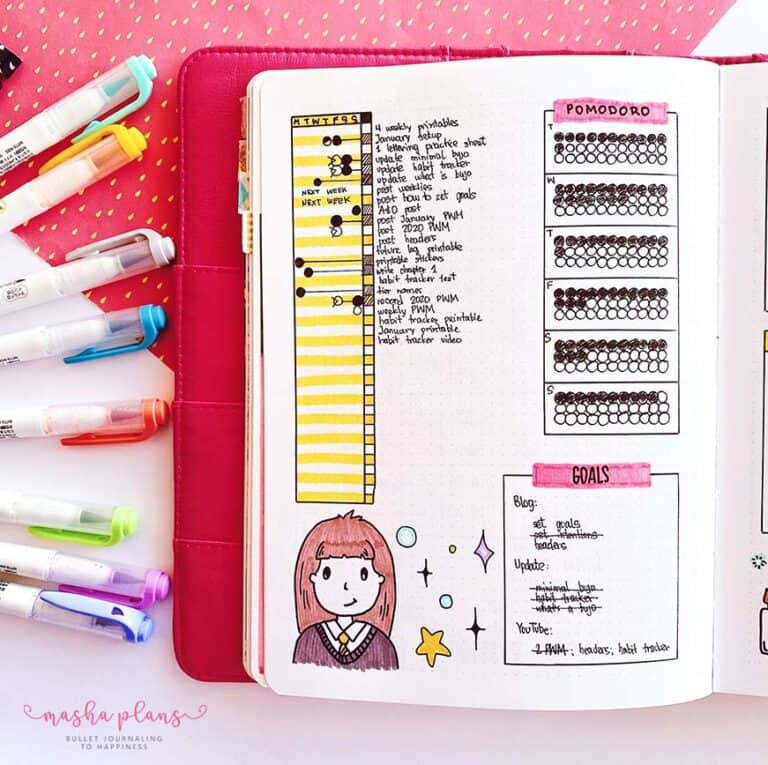 M T W T F S S
4 weekly printables
January setup
1 lettering practice sheet
update minimal bujo
update habit tracker
update what is bujo
NEXT WEEK post weeklies
NEXT WEEK post how to set goals
post
post January PWM
post 2020 PWM
post headers
future log printable
printable stickers
write chapter 1
habit tracker text
tier names
record 2020 PWM
weekly PWM
habit tracker printable
January printable
habit tracker video
POMODORO
T
W
T
F
S
S
GOALS
Blog:
set goals
post intentions
headers
Update:
minimal bujo
habit tracker
whats a bujo
YouTube:
2 PWM; headers; habit tracker
masha plans
BULLET JOURNALING
TO HAPPINESS